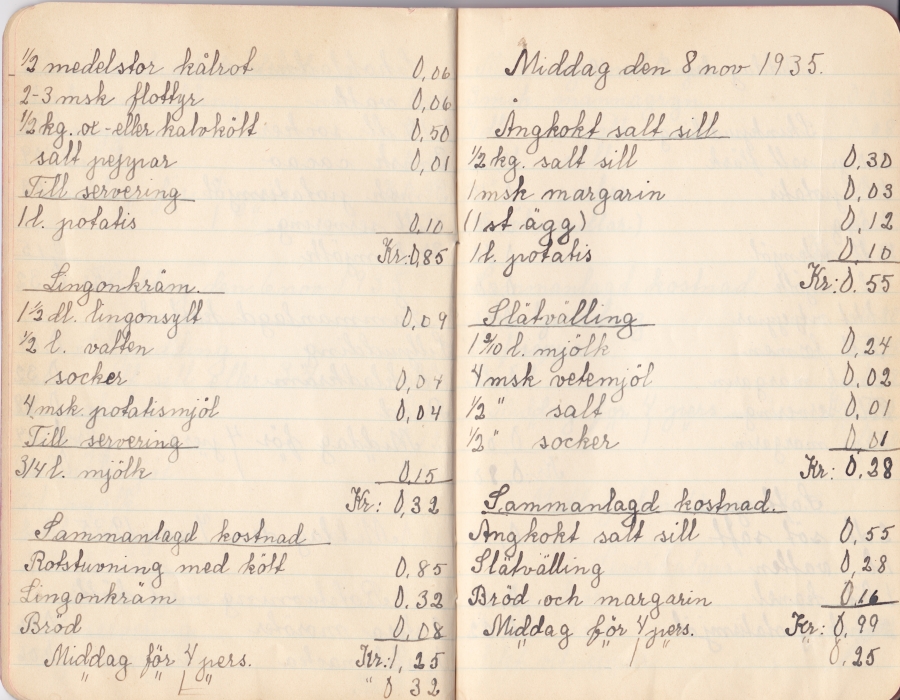 1/2 medelstor kålrot 0,06
2-3 msk flottyr 0,06
1/2 kg. ox- eller kalvkött 0,50
salt peppar 0,01
Till servering
1 l. potatis 0,10
Kr: 0,85
Lingonkräm.
1 1/2 dl. lingonsylt 0,09
1/2 l. vatten
socker 0,04
4 msk. potatismjöl 0,04
Till servering
3/4 l. mjölk 0,15
Kr: 0,32
Sammanlagd kostnad
Rotstuvning med kött 0,85
Lingonkräm 0,32
Bröd 0,08
Middag för 4 pers. Kr: 1,25
" " 1 " " 0,32
Middag den 8 nov 1935.
Ångkokt salt sill
1/2 kg. salt sill 0,30
1 msk margarin 0,03
(1 st ägg) 0,12
1 l. potatis 0,10
Kr: 0,55
Slätvälling
1 2/10 l. mjölk 0,24
4 msk vetemjöl 0,02
1/2 " salt 0,01
1/2 " socker 0,01
Kr: 0,28
Sammanlagd kostnad.
Ångkokt salt sill 0,55
Slätvälling 0,28
Bröd och margarin 0,16
Middag för 4 pers. Kr: 0,99
" " 1 " 0,25